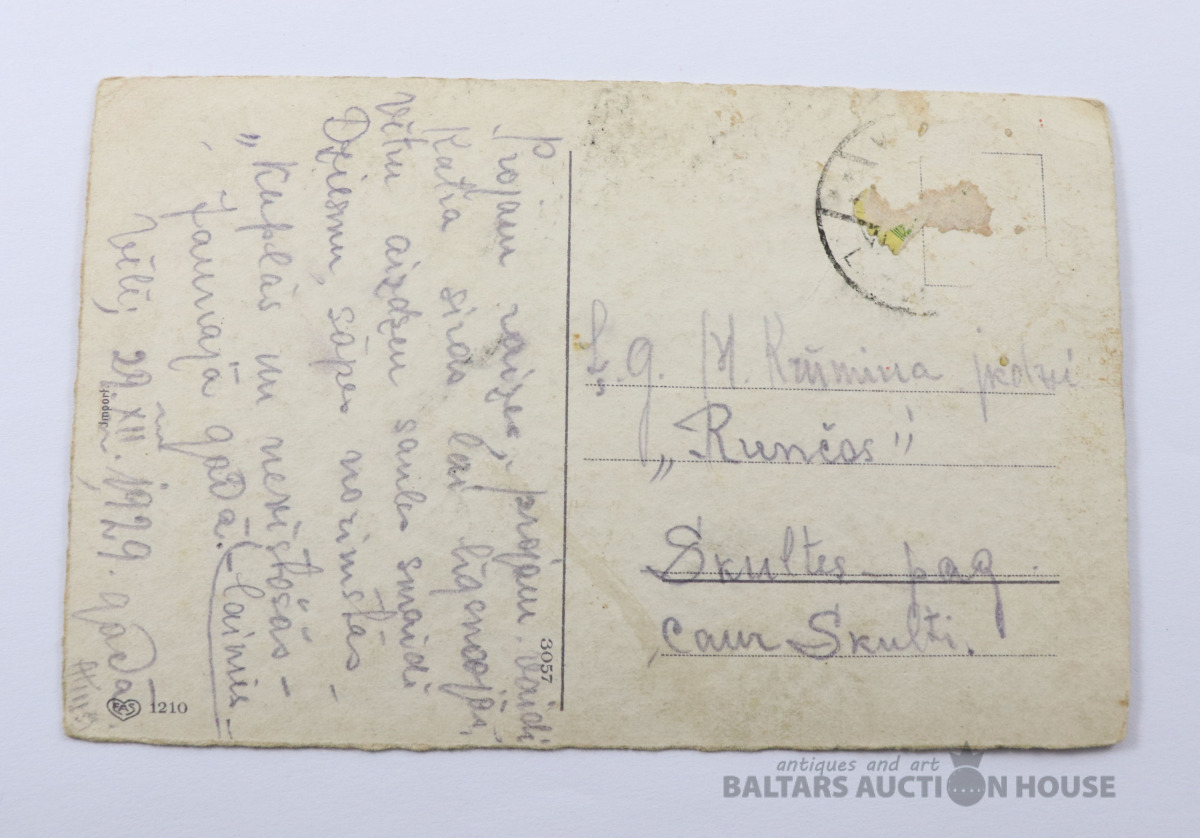 Projam raizes, projam vaidi
Katra sirds lai līgsmojas,
Vētru aizdzen saules smaidi
Dziesmu, sāpes norimstās -
„Kuplās un nevīstošās -
Jaunajā gadā. laimes -
Vēlē, 29. XII. 1929. gadā.
Import
EAS 1210
3057
L. g. M. Krūmiņa
„Runčos"
Skultes - pag.
caur Skulti.
antiques and art
BALTARS AUCTION HOUSE